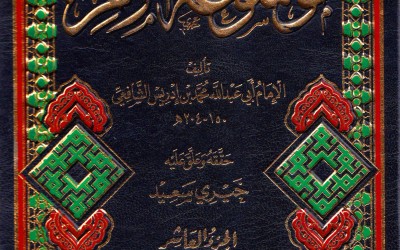 موسوعة الأم
تأليف
الإمام أبي عبد الله محمد بن إدريس الشافعي
١٥٠-٢٠٤هـ
حققه وعلق عليه
خيري سعيد
الجزء العاشر